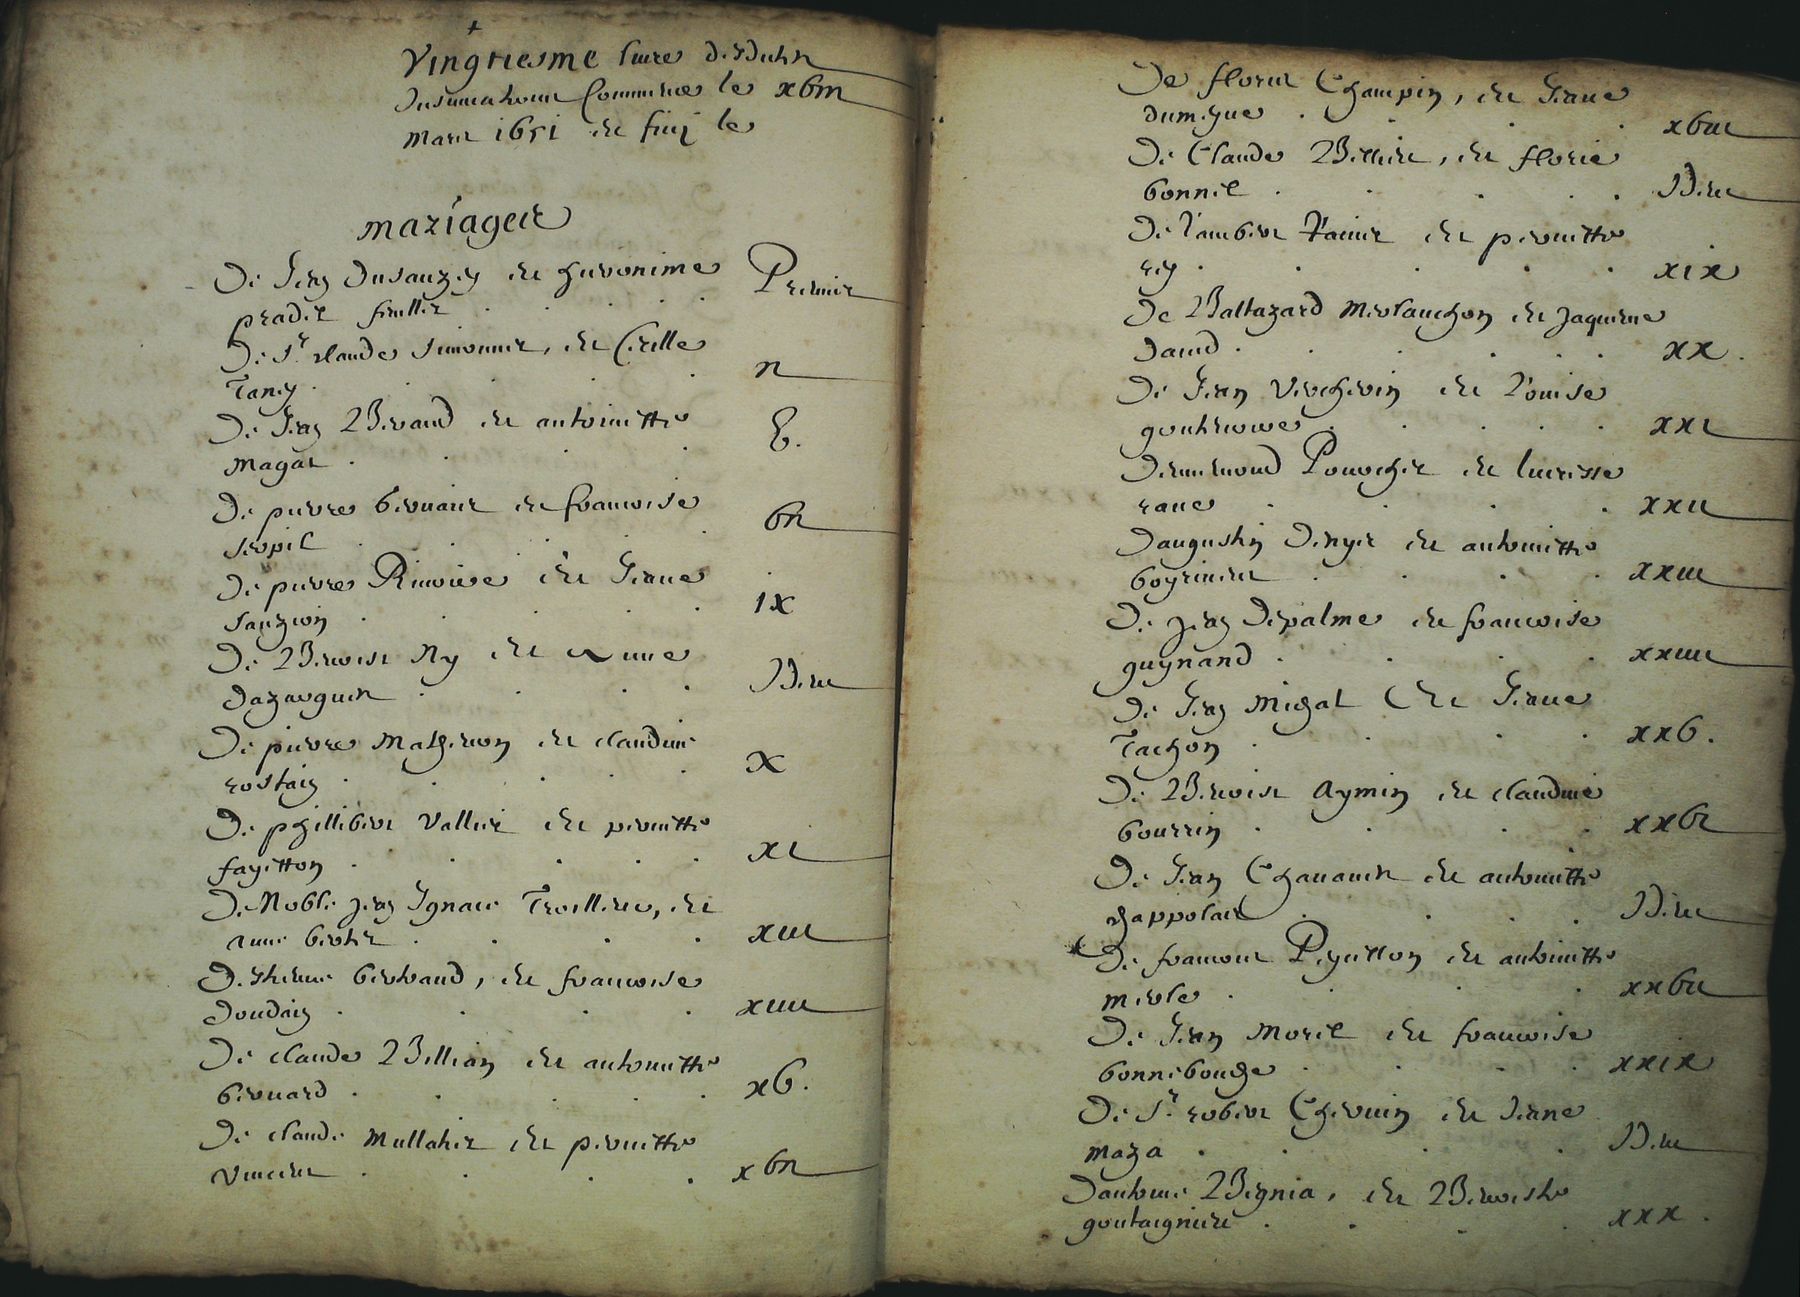 Vingtiesme livre desdittes
Insinuations Commencé le xbiii
Mars 1651 et finy le
Mariages
De Jean Dusauzey et hieronime
pradel feuillet
Premier
De Sr claude Simonnet, et Cecille
Taney
ii
De Jean Beraud et anthoinette
Magat
b.
De pierre bernard et francoise
bii
De pierre Rivoire et Jeane
Sauzion
ix
De Benoist Ny et Anne
Dazargues
Idem
De pierre Matheuon et claudine
rostaing
x
De phillibert Vallier et pernette
fayetton
xi
De Noble jean Ignace Trollieur, et
anne bertet
xiii
Destienne bertrand, et francoise
Doudain
xiiii
De claude Billian et anthoinette
bernard
xb.
De claude Mullatier et pernette
Vincent
xbii
De fleury Champin, et Jeane
xbiii
De Claude Billiet, et florie
bonnel
Idem
De Lambert Ramier et pernette
rey
xix
De Baltazard Merlanchon et Jaqueme
David
xx.
De Jean Vercherin et Louise
xxi
Pourchet et lucresse
rane
xxii
Daugustin Denyer et anthoinette
xxiii
De jean Depalme et francoise
guynand
xxiiii
De Jean Michal Et Jeane
Tachon
xxb.
De Benoist Aymin et claudine
bourrin
xxbi
De Jean Chavanis et anthoinette
chappolard
Idem
De francois Peyretton et anthoinette
merle
xxbii
De Jean Morel et francoise
bonnebouche
xxix
De Sr robert Chervin et Jeane
maza
Idem
Danthoine Begnia, et Benoiste
goutaigniere
xxx.